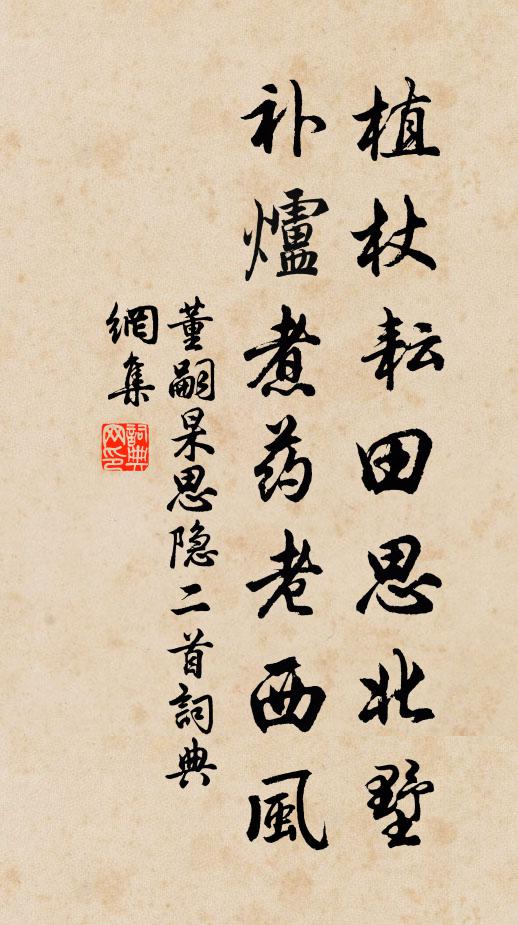 植杖耘田思北墅
补爐煮药老西風
董嗣杲思隐二首詞典
網集
詞典網印